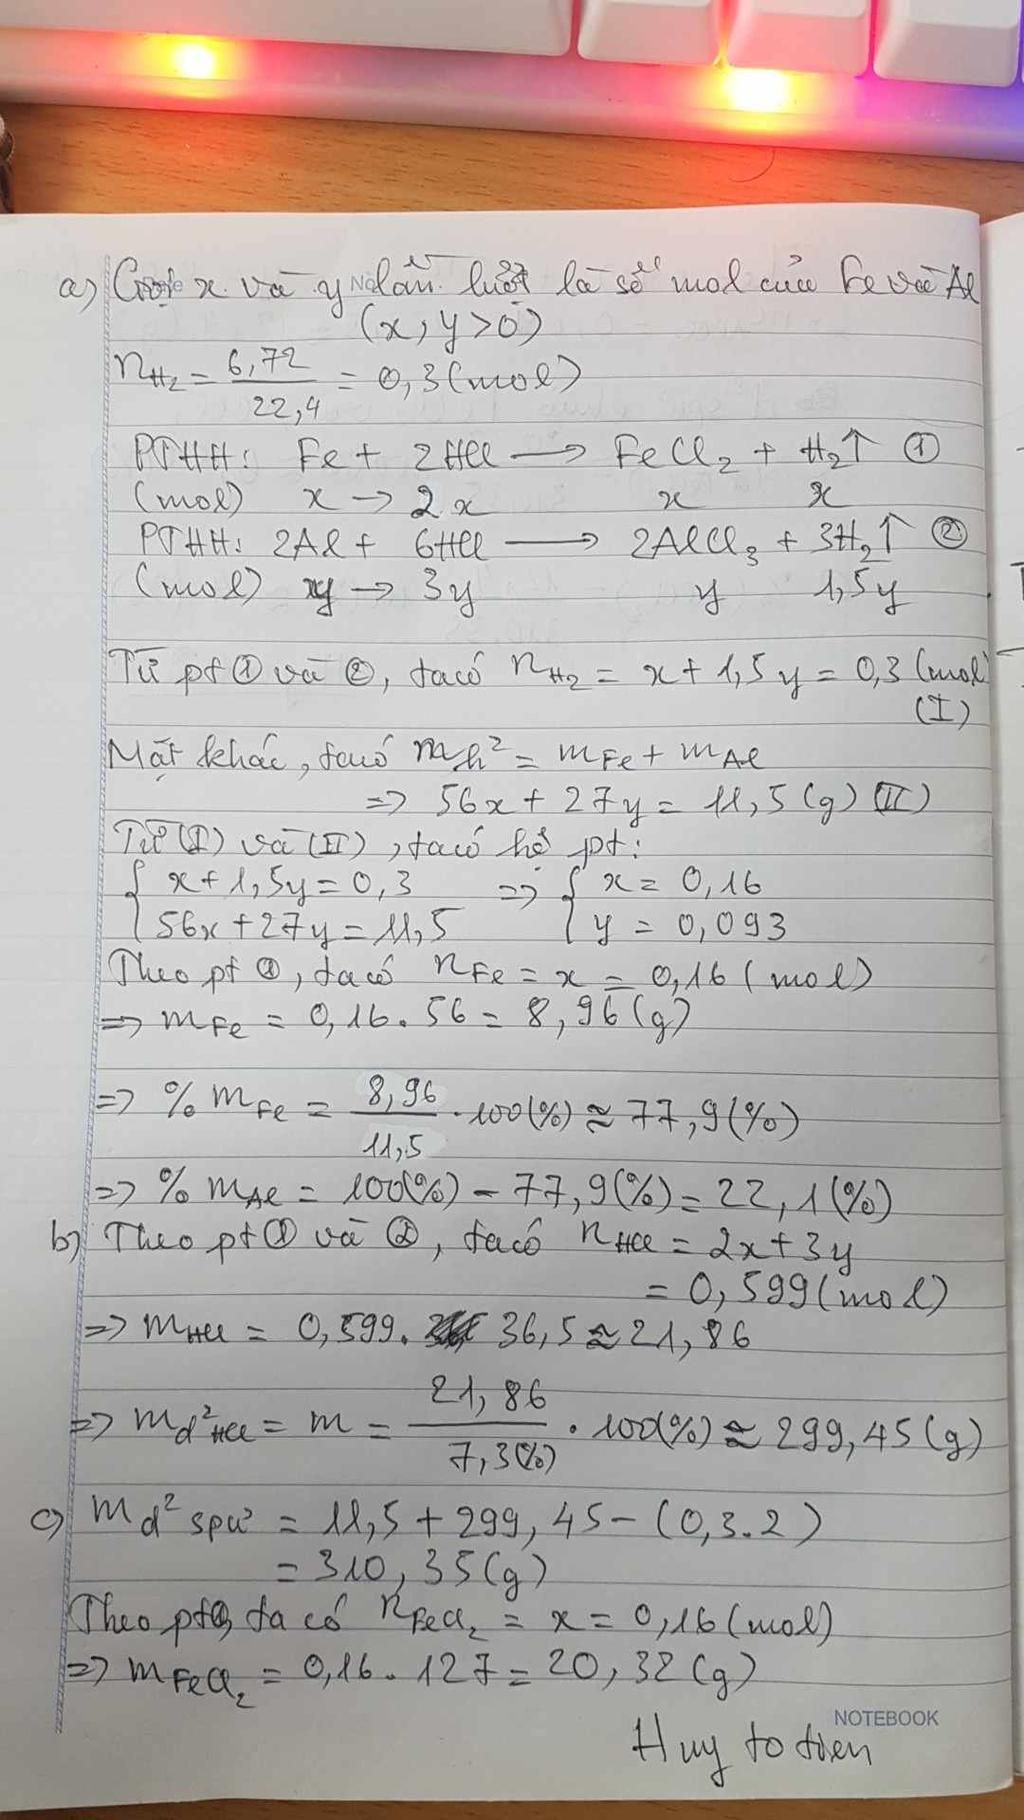 a) Gọi x và y lần lượt là số mol của Fe và Al
(x, y > 0)
n_H₂ = 6,72/22,4 = 0,3 (mol)
PTHH: Fe + 2HCl → FeCl₂ + H₂↑ ①
(mol) x → 2x x x
PTHH: 2Al + 6HCl → 2AlCl₃ + 3H₂↑ ②
(mol) y → 3y y 1,5y
Từ pt ① và ②, ta có n_H₂ = x + 1,5y = 0,3 (mol)
(I)
Mặt khác, ta có m_h² = m_Fe + m_Al
=> 56x + 27y = 11,5 (g) (II)
Từ (I) và (II), ta có hệ pt:
{ x + 1,5y = 0,3 => { x = 0,16
{ 56x + 27y = 11,5 { y = 0,093
Theo pt ①, ta có n_Fe = x = 0,16 (mol)
=> m_Fe = 0,16 . 56 = 8,96 (g)
=> % m_Fe = 8,96/11,5 . 100(%) ≈ 77,9 (%)
=> % m_Al = 100(%) - 77,9(%) = 22,1 (%)
b) Theo pt ① và ②, ta có n_HCl = 2x + 3y
= 0,599 (mol)
=> m_HCl = 0,599 . 36,5 ≈ 21,86
=> m_d²HCl = m = 21,86/7,3(%) . 100(%) ≈ 299,45 (g)
c) m_d² spư = 11,5 + 299,45 - (0,3.2)
= 310,35 (g)
Theo pt①, ta có n_FeCl₂ = x = 0,16 (mol)
=> m_FeCl₂ = 0,16 . 127 = 20,32 (g)
NOTEBOOK
Huy to tien